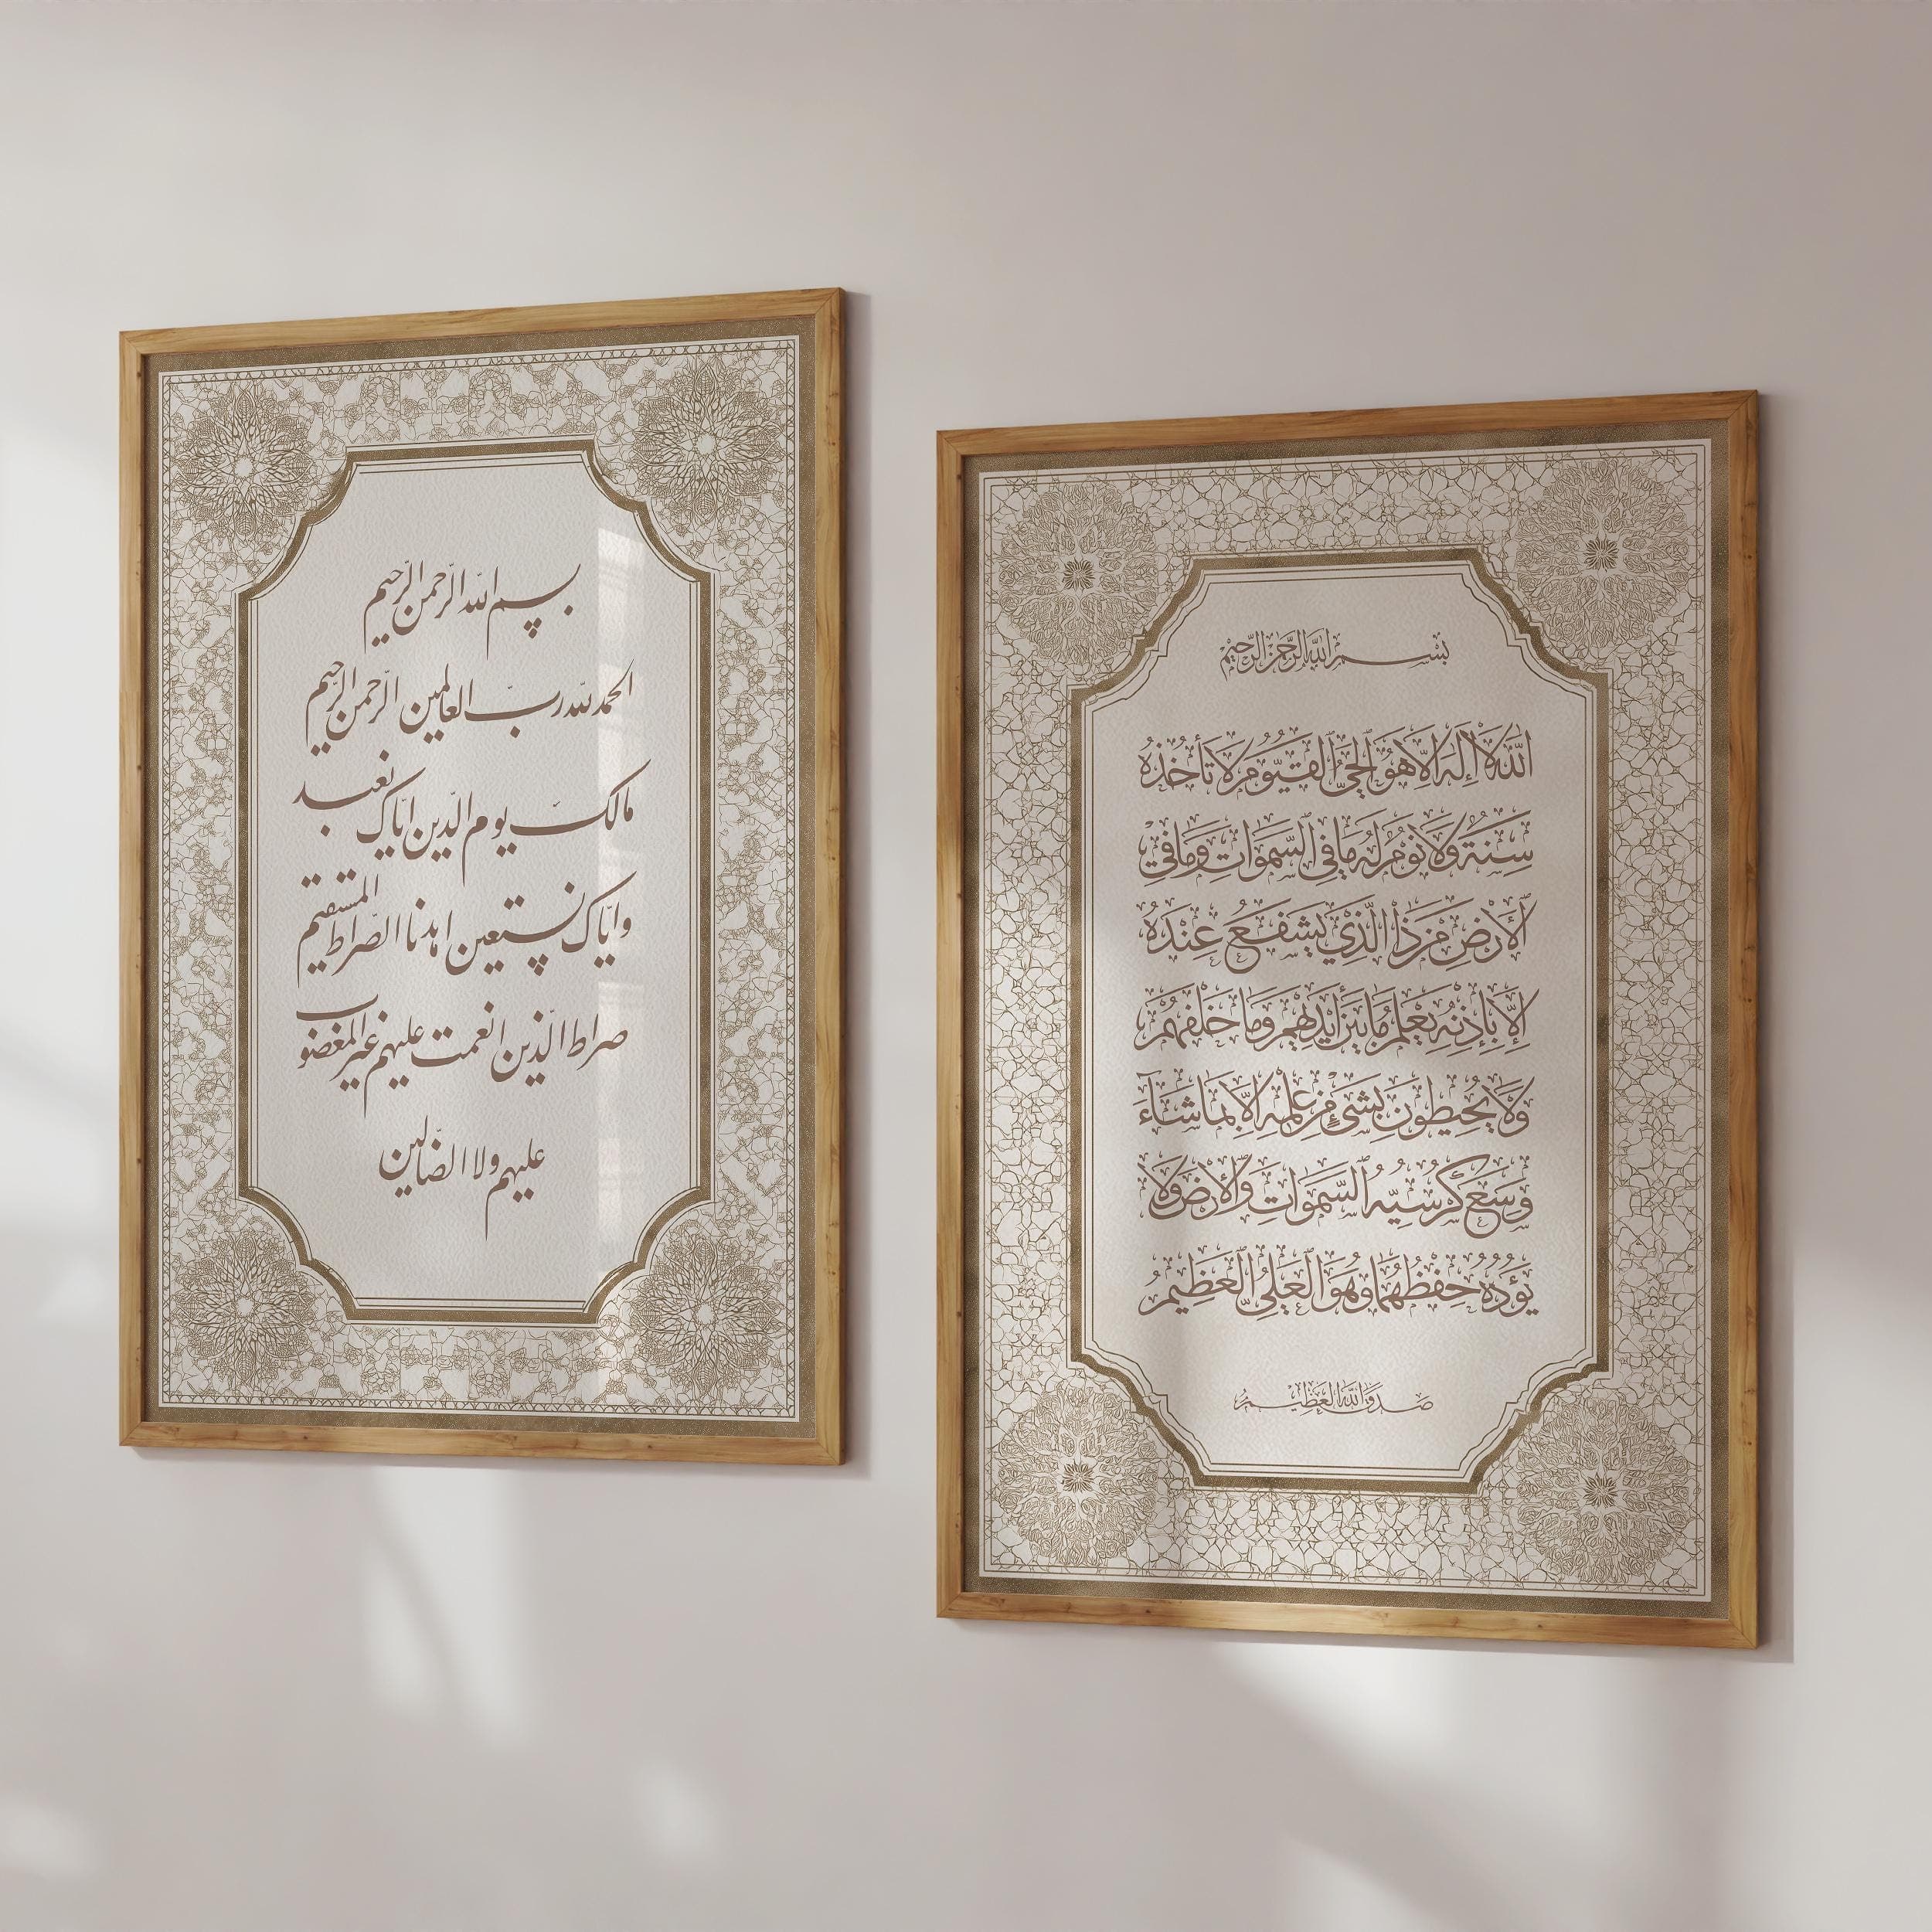 بسم الله الرحمن الرحيم
الحمد لله رب العالمين الرحمن الرحيم
مالك يوم الدين اياك نعبد
واياك نستعين اهدنا الصراط المستقيم
صراط الذين انعمت عليهم غير المغضوب
عليهم ولا الضالين
بسم الله الرحمن الرحيم
الله لا إله إلا هو الحي القيوم لا تأخذه
سنة ولا نوم له ما في السموات وما في
الأرض من ذا الذي يشفع عنده
إلا بإذنه يعلم ما بين أيديهم وما خلفهم
ولا يحيطون بشيء من علمه إلا بما شاء
وسع كرسيه السموات والأرض ولا
يؤده حفظهما وهو العلي العظيم
صدق الله العظيم